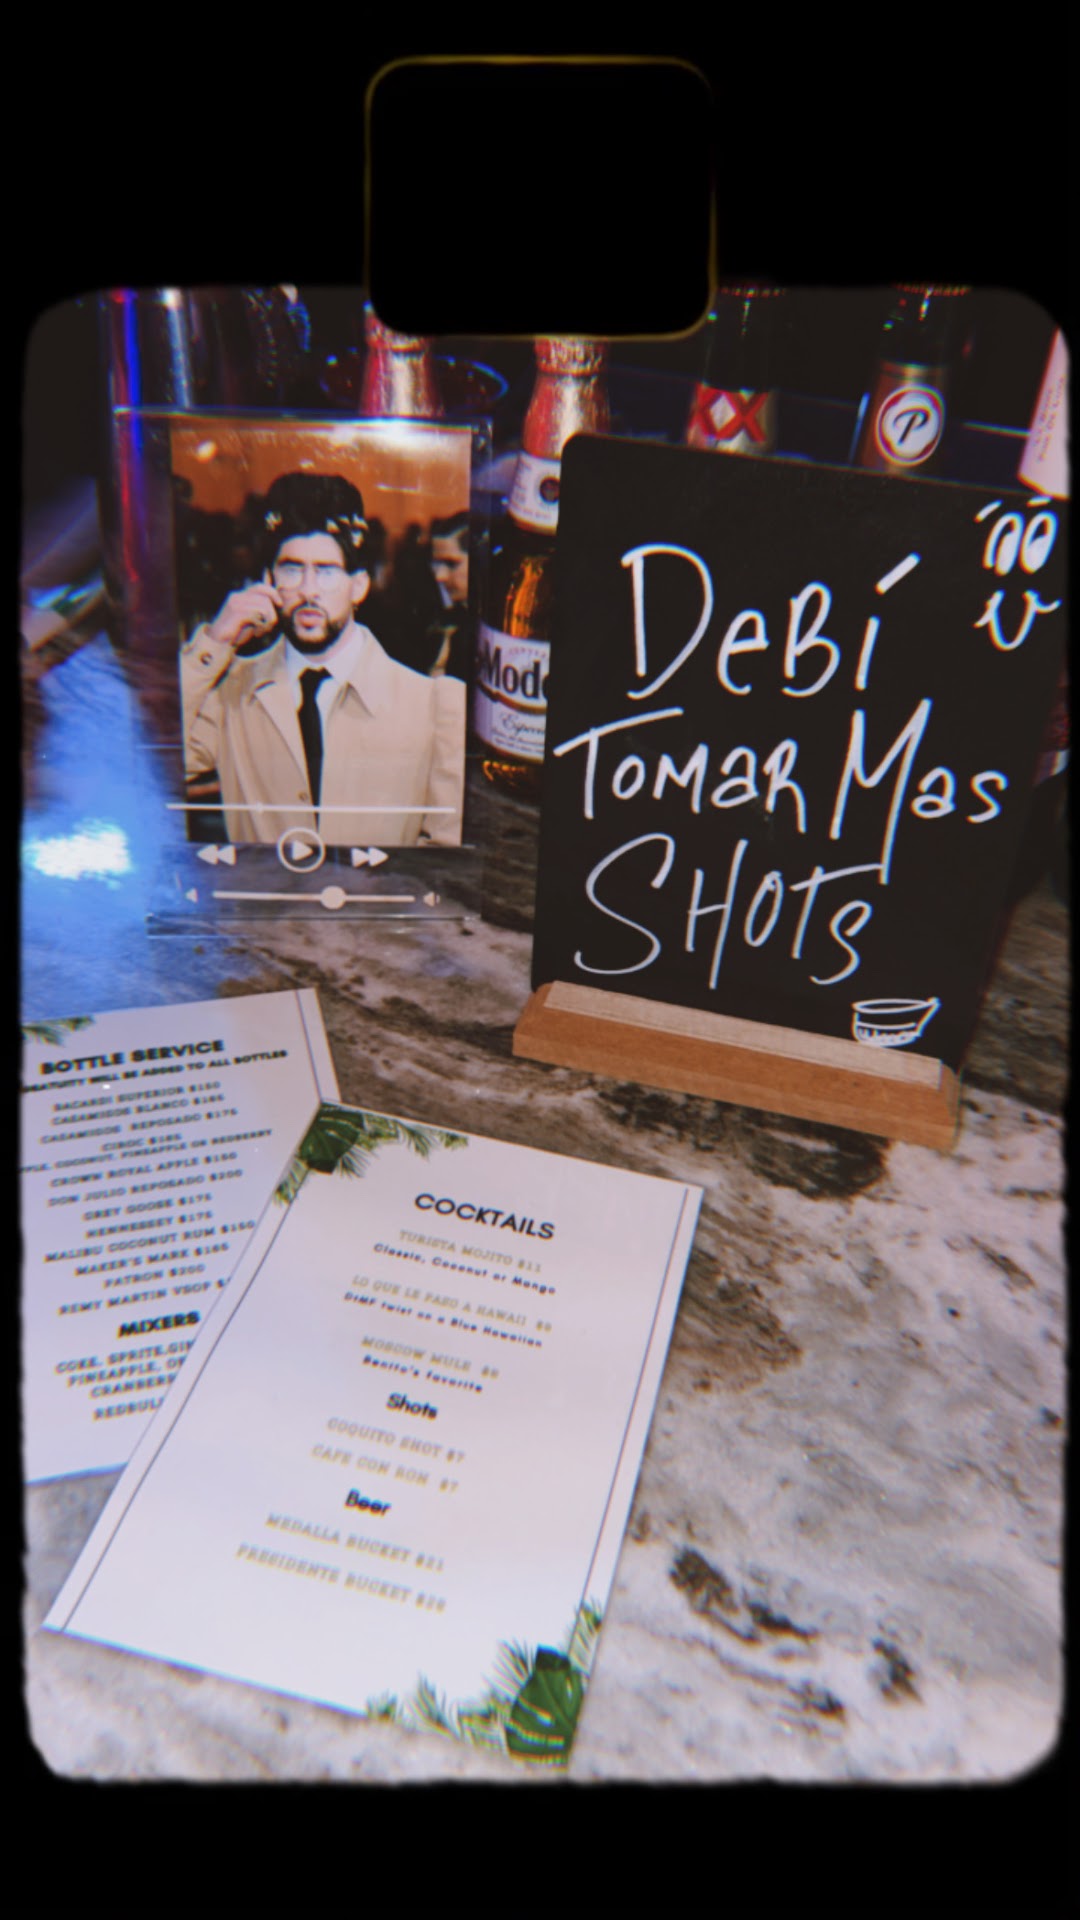 XX
P
Mod
Especi
DeBí
TomaR Mas
SHOTs
BOTTLE SERVICE
GRATUITY WILL BE ADDED TO ALL BOTTLES
BACARDI SUPERIOR $150
CASAMIGOS BLANCO $165
CASAMIGOS REPOSADO $175
CIROC $165
PLE, COCONUT, PINEAPPLE OR REDBERRY
CROWN ROYAL APPLE $150
DON JULIO REPOSADO $200
GREY GOOSE $175
HENNESSEY $175
MALIBU COCONUT RUM $150
MAKER'S MARK $165
PATRON $200
REMY MARTIN VSOP
MIXERS
COKE, SPRITE, GIN
PINEAPPLE, OR
CRANBERR
REDBULL
COCKTAILS
TURISTA MOJITO $11
Classic, Coconut or Mango
LO QUE LE PASO A HAWAII
DtMF twist on a Blue Hawaiian
MOSCOW MULE
Benito's favorite
Shots
COQUITO SHOT $7
CAFE CON RON $7
Beer
MEDALLA BUCKET $21
PRESIDENTE BUCKET